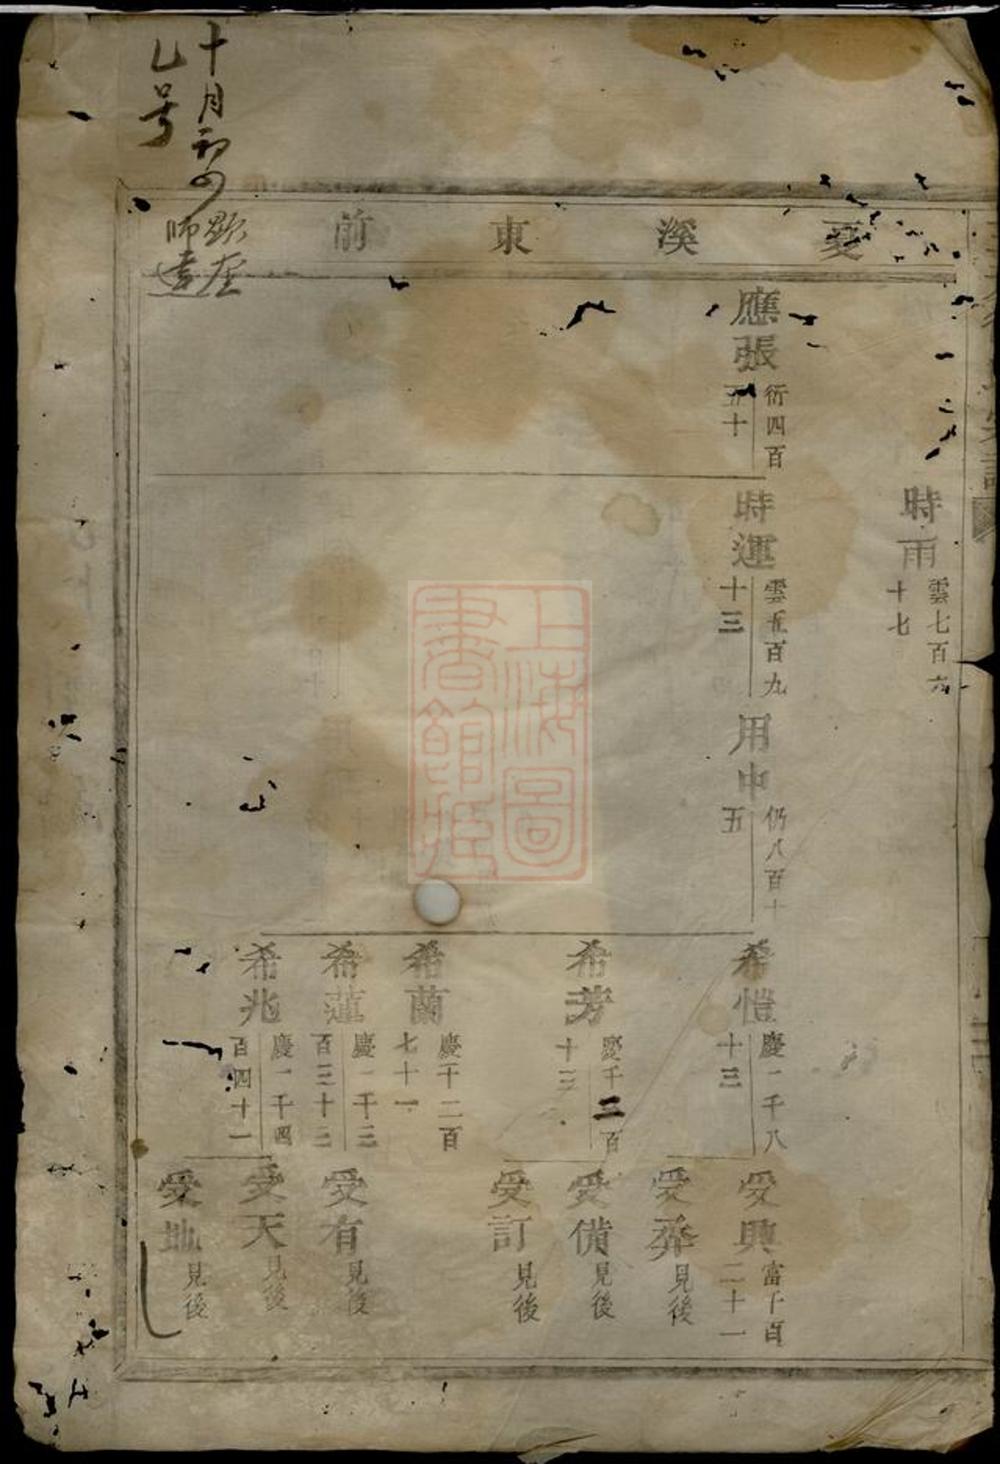 十月初四
乙号
溪東前
時雨
雲七百六
十七
應張
衍四百
五十
時運
雲五百九
十三
用中
仍八百十
五
希愷
慶一千八
十三
希芳
慶千二百
十三
希蘭
慶千二百
七十一
希蓮
慶一千三
百三十三
希兆
慶一千四
百四十一
受興
富千百
二十一
受彝
見後
受備
見後
受訂
見後
受有
見後
受天
見後
受地
見後
上海圖
書館藏